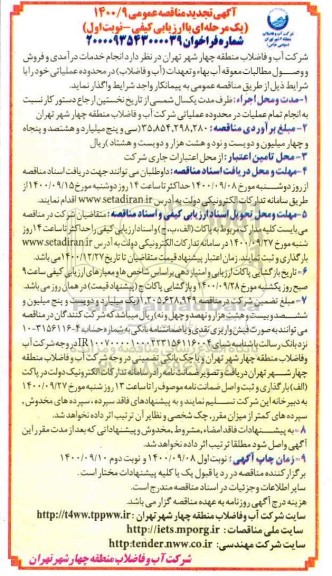 آگهی تجدید مناقصه عمومی ۱۴۰۰/۹
(یک مرحله ای با ارزیابی کیفی - نوبت اول)
شماره فراخوان ۲۰۰۰۰۹۳۵۴۳۰۰۰۰۳۹
شرکت آب و فاضلاب منطقه چهار شهر تهران در نظر دارد انجام خدمات درآمدی و فروش
و وصول مطالبات معوقه آب بهاء و تعهدات (آب و فاضلاب) در محدوده عملیاتی خود را با
شرایط ذیل از طریق مناقصه عمومی به پیمانکار واجد شرایط واگذار نماید.
۱- مدت و محل اجراء: ظرف مدت یکسال شمسی از تاریخ نخستین ارجاع دستور کار نسبت
به انجام تمام عملیات در محدوده عملیاتی شرکت آب و فاضلاب منطقه چهار شهر تهران
۲- مبلغ برآوردی مناقصه: ۳۵,۸۵۴,۲۹۸,۲۸۰ (سی و پنج میلیارد و هشتصد و پنجاه
و چهار میلیون و دویست و نود و هشت هزار و دویست و هشتاد) ریال
۳- محل تامین اعتبار: از محل اعتبارات جاری شرکت
۴- مهلت و محل دریافت اسناد مناقصه: داوطلبان می توانند جهت دریافت اسناد مناقصه
از روز دوشنبه مورخ ۱۴۰۰/۰۹/۰۸ حداکثر تا ساعت ۱۴ روز دوشنبه مورخ ۱۴۰۰/۰۹/۱۵ از
طریق سامانه تدارکات الکترونیکی دولت به آدرس www.setadiran.ir اقدام نمایند.
۵- مهلت و محل تحویل اسناد ارزیابی کیفی و اسناد مناقصه: متقاضیان شرکت در مناقصه
می بایست کلیه مدارک مربوط به پاکات (الف، ب، ج) و اسناد ارزیابی کیفی را حداکثر تا ساعت ۱۴ روز
شنبه مورخ ۱۴۰۰/۰۹/۲۷ در سامانه تدارکات الکترونیکی دولت به آدرس www.setadiran.ir
بارگذاری و ثبت نمایند. زمان اعتبار پیشنهاد قیمت متقاضیان تا تاریخ ۱۴۰۰/۱۲/۲۷ می باشد.
۶- تاریخ بازگشایی پاکات ارزیابی و امتیازدهی بر اساس شاخص ها و معیارهای ارزیابی کیفی ساعت ۹
صبح روز یکشنبه مورخ ۱۴۰۰/۰۹/۲۸ و بازگشایی پاکات ج (پیشنهاد قیمت) در همان روز می باشد.
۷- مبلغ تضمین شرکت در مناقصه ۱,۲۰۵,۶۲۸,۹۴۹ (یک میلیارد و دویست و پنج میلیون و
ششصد و بیست و هشت هزار و نهصد و چهل و نه) ریال میباشد که شرکت کنندگان در مناقصه
می توانند به صورت فیش واریزی نقدی و یا ضمانتنامه بانکی به شماره حساب
نزد بانک رسالت با شناسه شبای در وجه شرکت آب
وفاضلاب منطقه چهار شهر تهران و یا چک بانکی تضمینی در وجه شرکت آب و فاضلاب منطقه
چهار شهر تهران دریافت و تصویر ضمانت نامه را در سامانه تدارکات الکترونیک دولت در پاکت
(الف) بارگذاری و ثبت و اصل ضمانت نامه موصوف را تا ساعت ۱۳ روز شنبه مورخ ۱۴۰۰/۰۹/۲۷
به دبیرخانه این شرکت تسلیم نمایند و به پیشنهادهای فاقد سپرده، سپرده های مخدوش،
سپرده های کمتر از میزان مقرر، چک شخصی و نظایر آن ترتیب اثر داده نخواهد شد.
۸- به پیشنهادات فاقد امضاء، مشروط، مخدوش و پیشنهاداتی که بعد از مدت مقرر این
آگهی واصل شود مطلقا ترتیب اثر داده نخواهد شد.
۹- زمان چاپ آگهی: نوبت اول ۱۴۰۰/۰۹/۰۸ و نوبت دوم ۱۴۰۰/۰۹/۱۰
برگزار کننده مناقصه در رد یا قبول یک یا کلیه پیشنهادات مختار است.
سایر اطلاعات و جزئیات در اسناد مناقصه مندرج است.
هزینه درج آگهی روزنامه به عهده مناقصه گزار می باشد.
سایت شرکت آب و فاضلاب منطقه چهار شهر تهران: http://t4ww.tppww.ir
سایت ملی مناقصات: http://iets.mporg.ir
سایت شرکت مهندسی: http:tender.nww.co.ir
شرکت آب و فاضلاب منطقه چهار شهر تهران